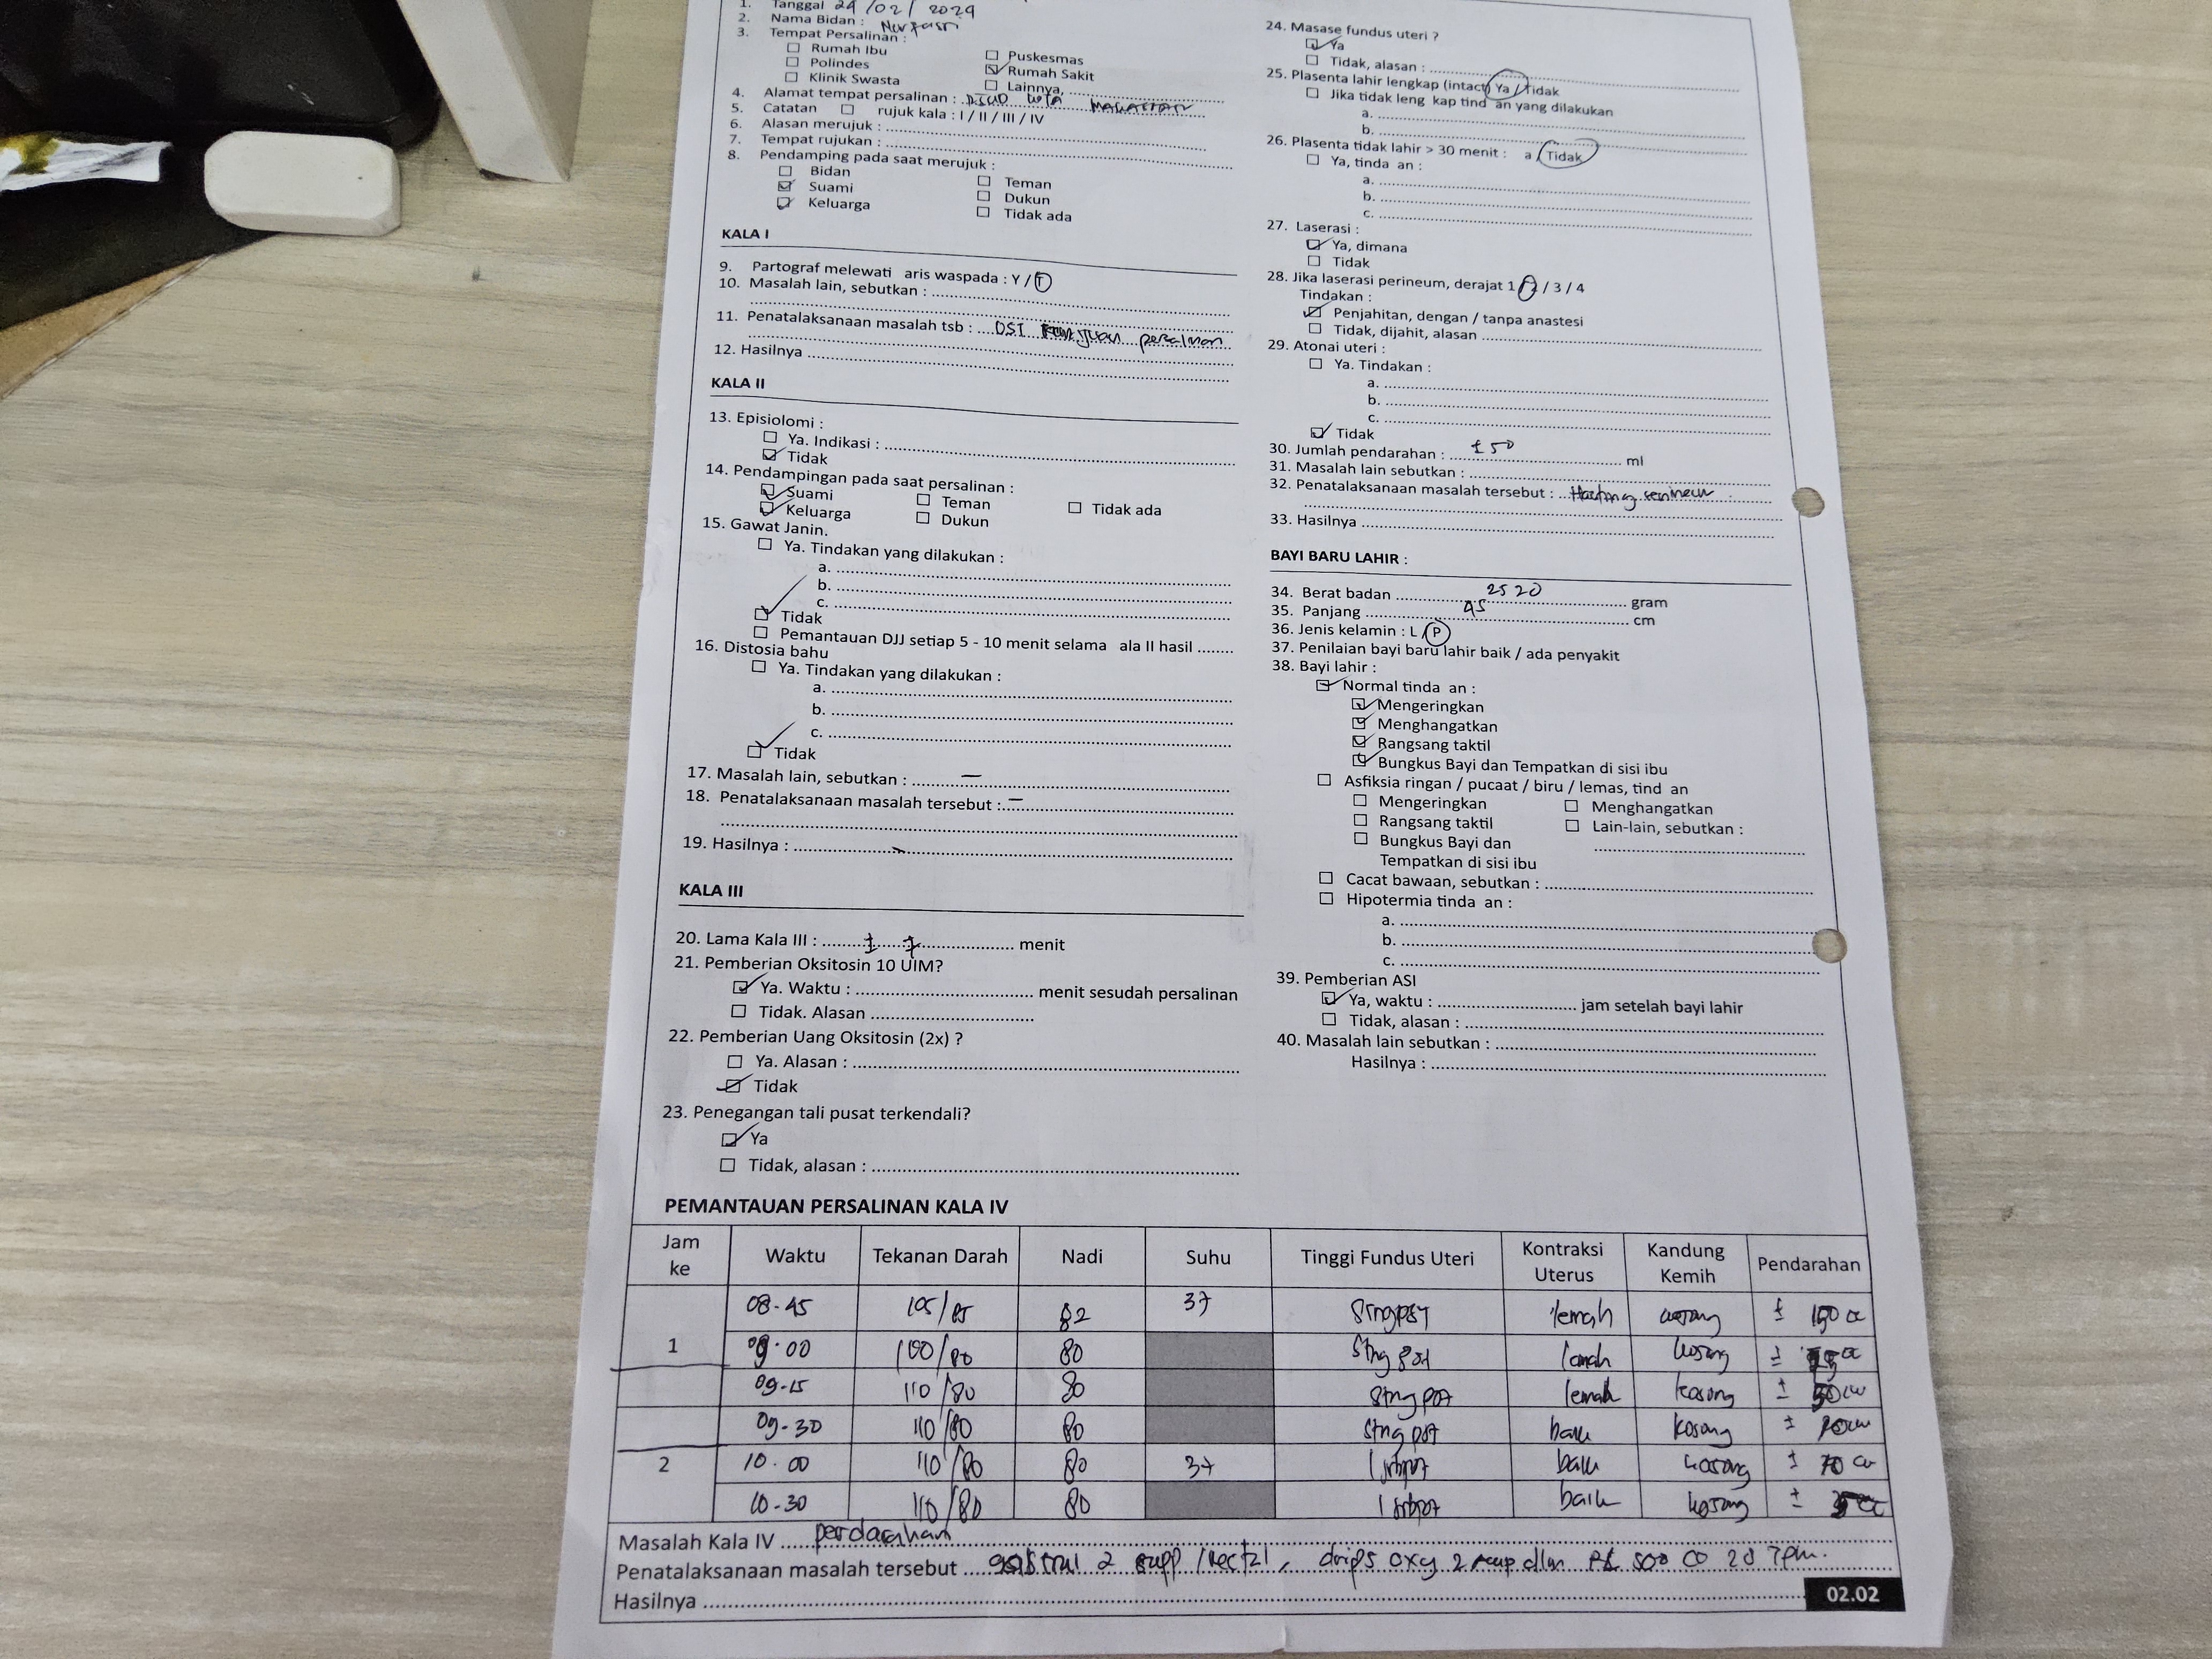 1. Tanggal 29/02/2024
2. Nama Bidan :
3. Tempat Persalinan :
☐ Rumah Ibu ☐ Puskesmas
☐ Polindes ☑ Rumah Sakit
☐ Klinik Swasta ☐ Lainnya,
4. Alamat tempat persalinan : RSUD kota
5. Catatan ☐ rujuk kala : I / II / III / IV
6. Alasan merujuk :
7. Tempat rujukan :
8. Pendamping pada saat merujuk :
☐ Bidan ☐ Teman
☑ Suami ☐ Dukun
☑ Keluarga ☐ Tidak ada
KALA I
9. Partograf melewati aris waspada : Y / T
10. Masalah lain, sebutkan :
11. Penatalaksanaan masalah tsb : persalinan
12. Hasilnya
KALA II
13. Episiolomi :
☐ Ya. Indikasi :
☑ Tidak
14. Pendampingan pada saat persalinan :
☑ Suami ☐ Teman ☐ Tidak ada
☑ Keluarga ☐ Dukun
15. Gawat Janin.
☐ Ya. Tindakan yang dilakukan :
a.
b.
c.
☑ Tidak
☐ Pemantauan DJJ setiap 5 - 10 menit selama ala II hasil
16. Distosia bahu
☐ Ya. Tindakan yang dilakukan :
a.
b.
c.
☑ Tidak
17. Masalah lain, sebutkan : —
18. Penatalaksanaan masalah tersebut : —
19. Hasilnya : -
KALA III
20. Lama Kala III : ± 7 menit
21. Pemberian Oksitosin 10 UIM?
☑ Ya. Waktu : menit sesudah persalinan
☐ Tidak. Alasan
22. Pemberian Uang Oksitosin (2x) ?
☐ Ya. Alasan :
☑ Tidak
23. Penegangan tali pusat terkendali?
☑ Ya
☐ Tidak, alasan :
24. Masase fundus uteri ?
☑ Ya
☐ Tidak, alasan :
25. Plasenta lahir lengkap (intact) Ya / Tidak
☐ Jika tidak leng kap tind an yang dilakukan
a.
b.
26. Plasenta tidak lahir > 30 menit : a / Tidak
☐ Ya, tinda an :
a.
b.
c.
27. Laserasi :
☑ Ya, dimana
☐ Tidak
28. Jika laserasi perineum, derajat 1 / 2 / 3 / 4
Tindakan :
☑ Penjahitan, dengan / tanpa anastesi
☐ Tidak, dijahit, alasan
29. Atonai uteri :
☐ Ya. Tindakan :
a.
b.
c.
☑ Tidak
30. Jumlah pendarahan : ± 50 ml
31. Masalah lain sebutkan :
32. Penatalaksanaan masalah tersebut :
33. Hasilnya
BAYI BARU LAHIR :
34. Berat badan 2520 gram
35. Panjang 45 cm
36. Jenis kelamin : L / P
37. Penilaian bayi baru lahir baik / ada penyakit
38. Bayi lahir :
☑ Normal tinda an :
☑ Mengeringkan
☑ Menghangatkan
☑ Rangsang taktil
☑ Bungkus Bayi dan Tempatkan di sisi ibu
☐ Asfiksia ringan / pucaat / biru / lemas, tind an
☐ Mengeringkan ☐ Menghangatkan
☐ Rangsang taktil ☐ Lain-lain, sebutkan :
☐ Bungkus Bayi dan
Tempatkan di sisi ibu
☐ Cacat bawaan, sebutkan :
☐ Hipotermia tinda an :
a.
b.
c.
39. Pemberian ASI
☑ Ya, waktu : jam setelah bayi lahir
☐ Tidak, alasan :
40. Masalah lain sebutkan :
Hasilnya :
PEMANTAUAN PERSALINAN KALA IV
Jam ke Waktu Tekanan Darah Nadi Suhu Tinggi Fundus Uteri Kontraksi Uterus Kandung Kemih Pendarahan
08.45 105/85 82 37 Stngpst lemah kosong ± 150 cc
1 09.00 100/80 80 Stng pst lemah kosong ±
09.15 110/80 80 Stng pst lemah kosong ± 50 cc
09.30 110/80 80 Stng pst baik kosong ±
2 10.00 110/80 80 37 1 jrbpst baik kosong ± 70 cc
10.30 110/80 80 1 jrbpst baik kosong ±
Masalah Kala IV perdarahan
Penatalaksanaan masalah tersebut gastrul 2 supp / rectal, drips oxy 2 amp dlm RL 500 cc 28 tpm.
Hasilnya
02.02